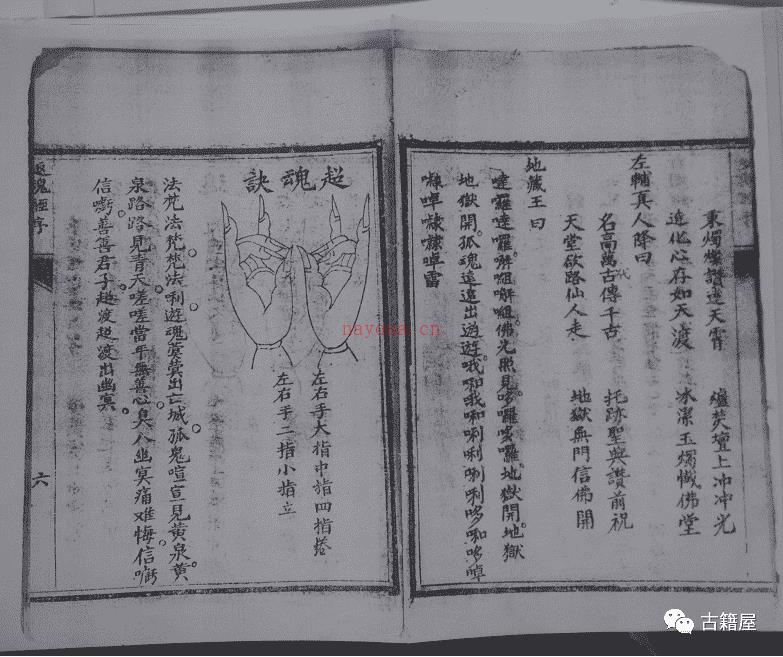 秉燭燦讚達天霄 爐焚壇上冲冲光
進化心存如天渡 冰潔玉燭懺佛堂
左輔真人降曰
名高萬古傳千古 托跡聖典讚前祝
代
天堂啟路仙人走 地獄無門信佛開
地藏王曰
噠囉噠囉 佛光照見哆囉哆囉地獄開地獄
地獄開孤魂遠遠出遊遊哦和哦和唎唎唎唎哆和哆啅
啅啅雷
超魂訣
左右手大指中指四指捲
左右手二指小指立
法梵法梵梵法唎遊魂冥冥出亡城孤鬼喧喧見黃泉黃
泉路路見青天嗟嗟當年無善心臭入幽冥痛难悔信
信善善君子超渡超渡出幽冥
魂經序
六
nayona.cn
古籍屋